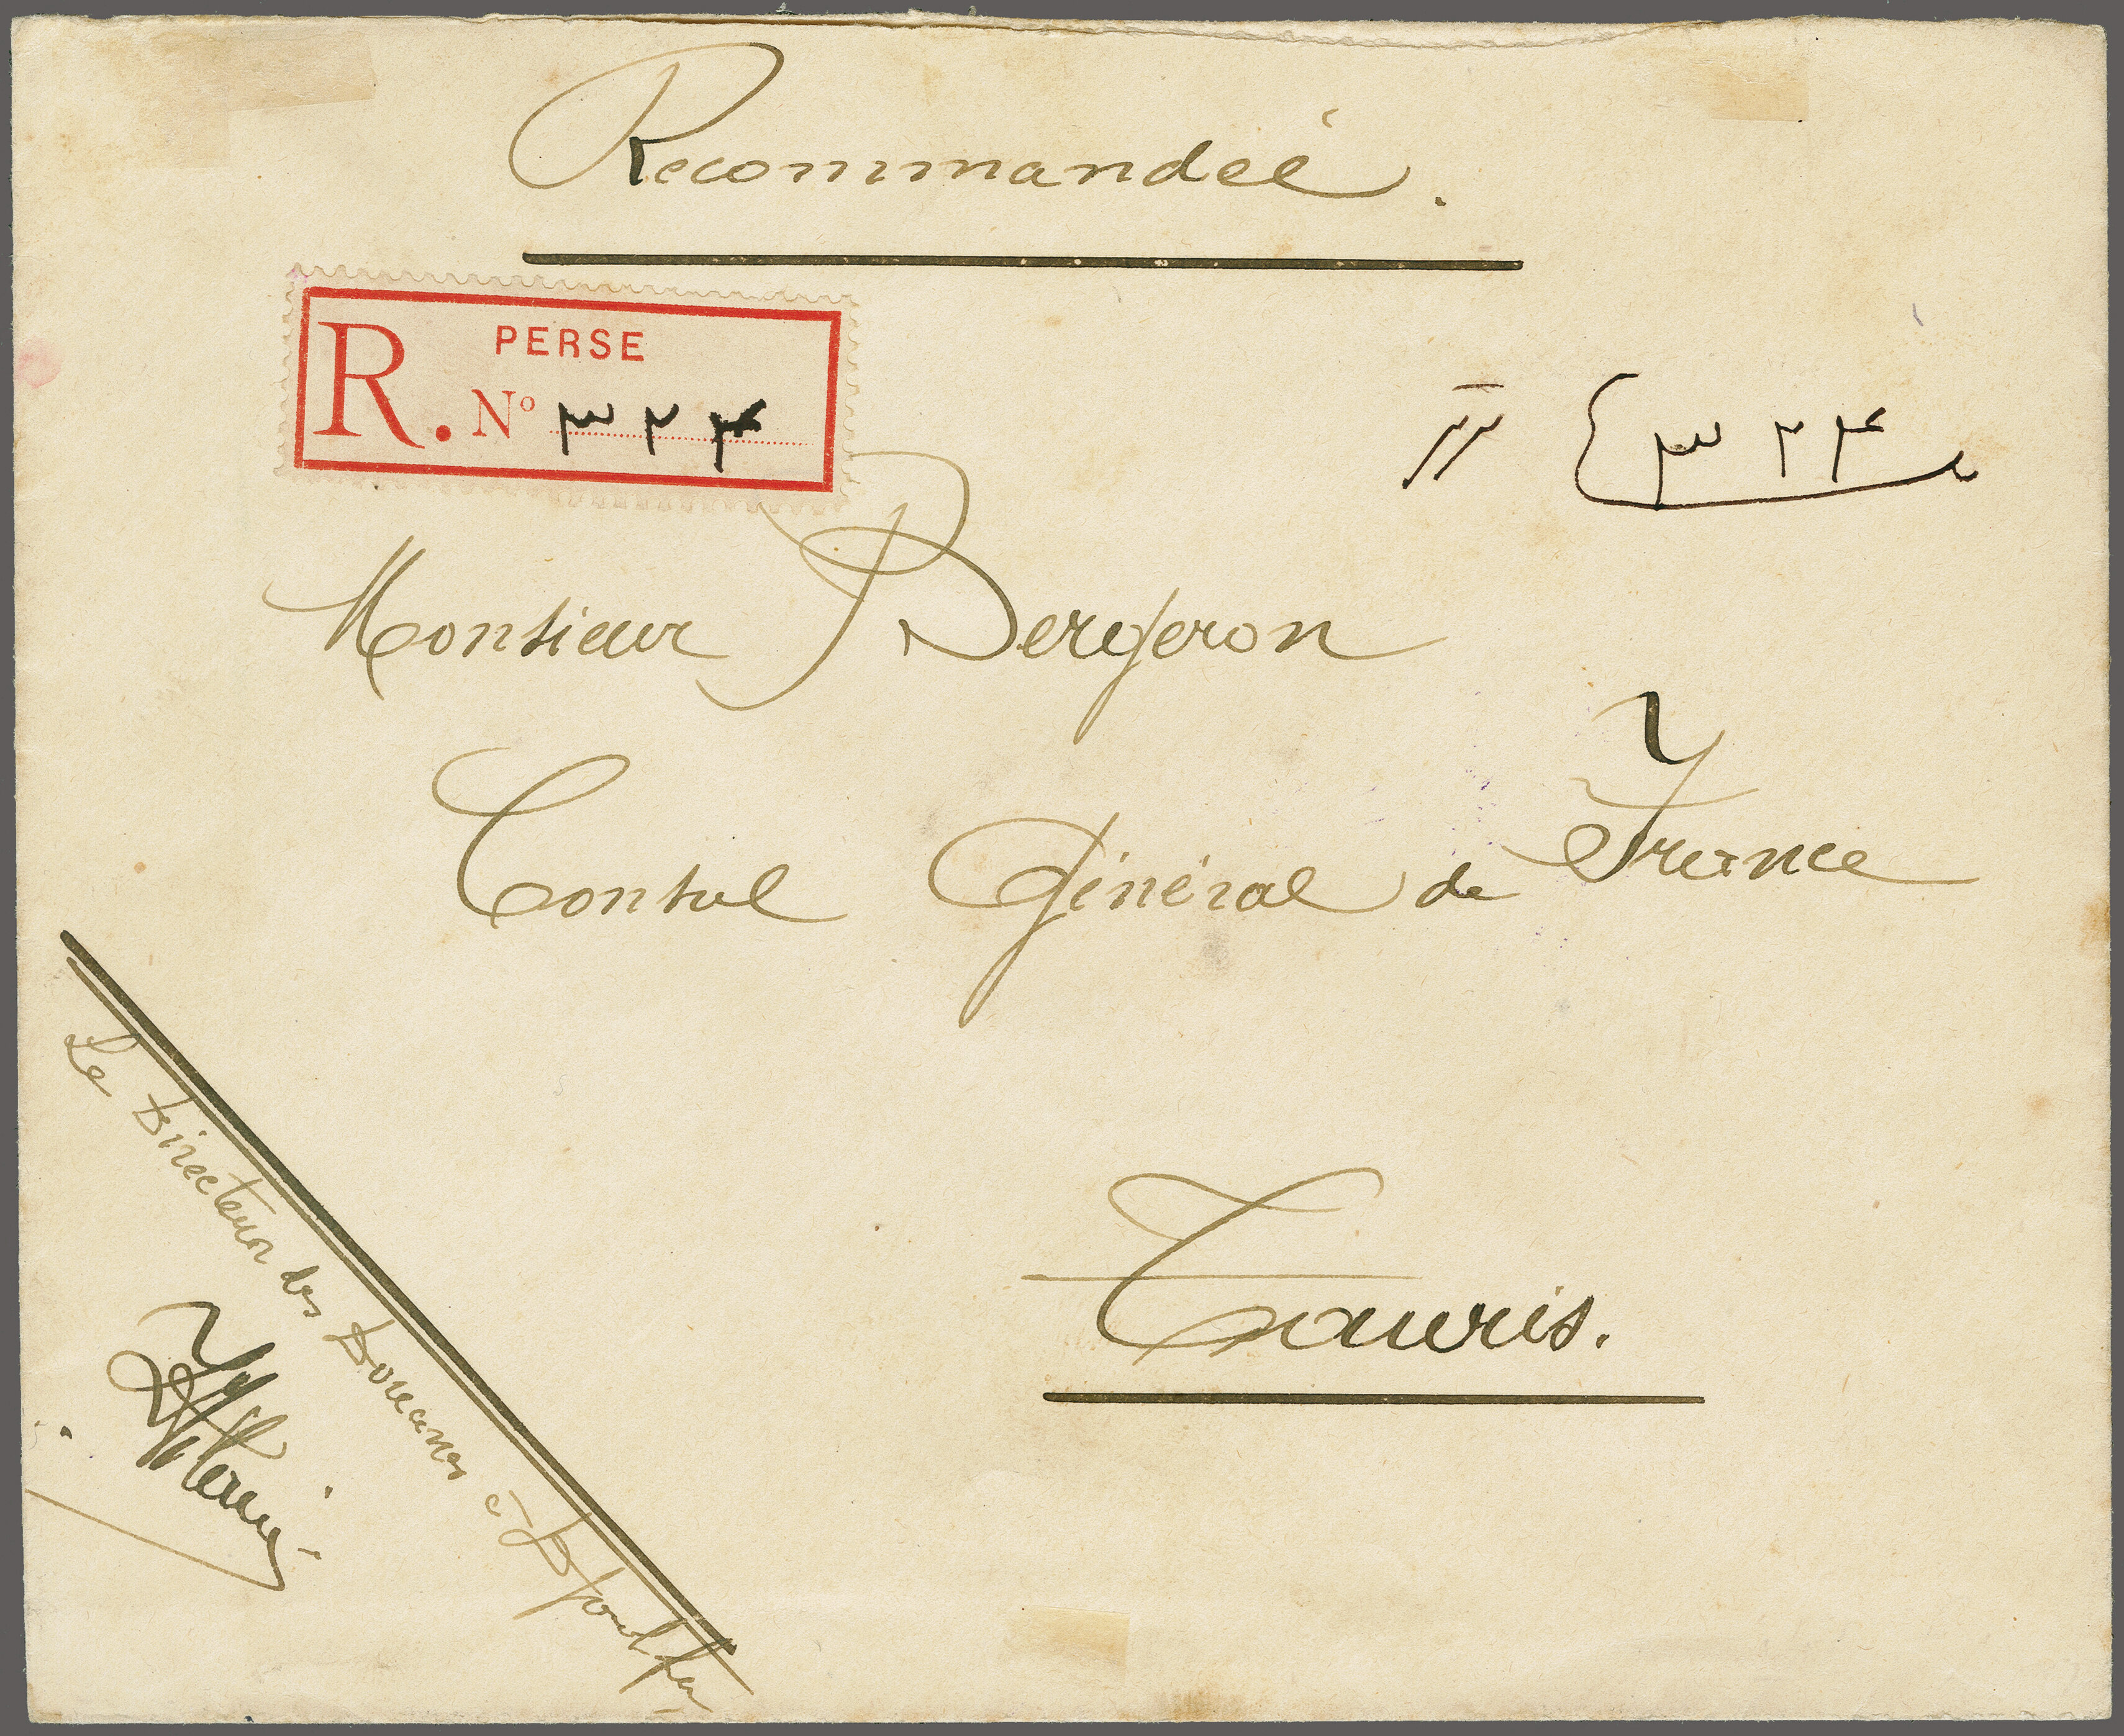 Recommandée.
PERSE
R. Nº ۳۲۴
۳۲۴
Monsieur Bergeron
Consul Général de France
Tauris.
Le Directeur des Douanes à Djoulfa